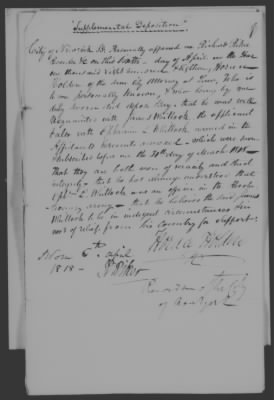 "Supplemental Deposition"
City of New York SS. Personally appeared me Richard Riker
Recorder &c on this Sixth day of April in the Year
one thousand eight hundred & Eighteen Horace
Holden of the said City Attorney at Law, Who is
to me personally known, & who being by me
duly sworn did depose & say, that he was well
acquainted with James Whitlock the applicant
also with Ephraim L Whitlock named in the
applicants annexed — which was
subscribed before me the 30th day of March 1818 —
that they are both men of veracity and strict
integrity & that he has always understood that
Capt L Whitlock was an officer in the
army — that he believes the said James
Whitlock to be in indigent circumstances &
need of relief from his Country for support.
Horace Holden
Sworn 6th April
1818 —
R Riker
Recorder of the City
of New York